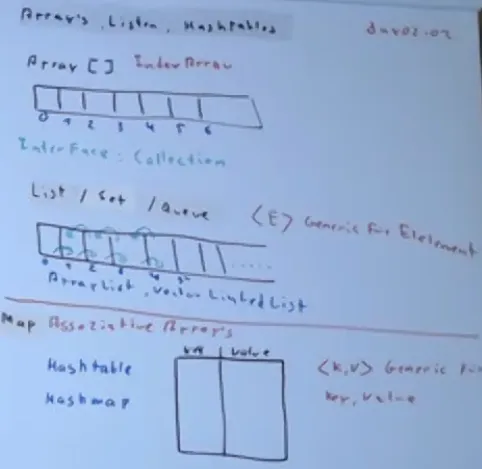 Array's, Listen, Hashtables
Array [] Index Array
0 1 2 3 4 5 6
InterFace: Collection
List / Set / Queue <E> Generic für Elelement
0 1 2 3 4 5 .....
ArrayList, Vector LinkedList
Map Assoziative Array's
key value
Hashtable <K,V> Generic für
Hashmap key, value